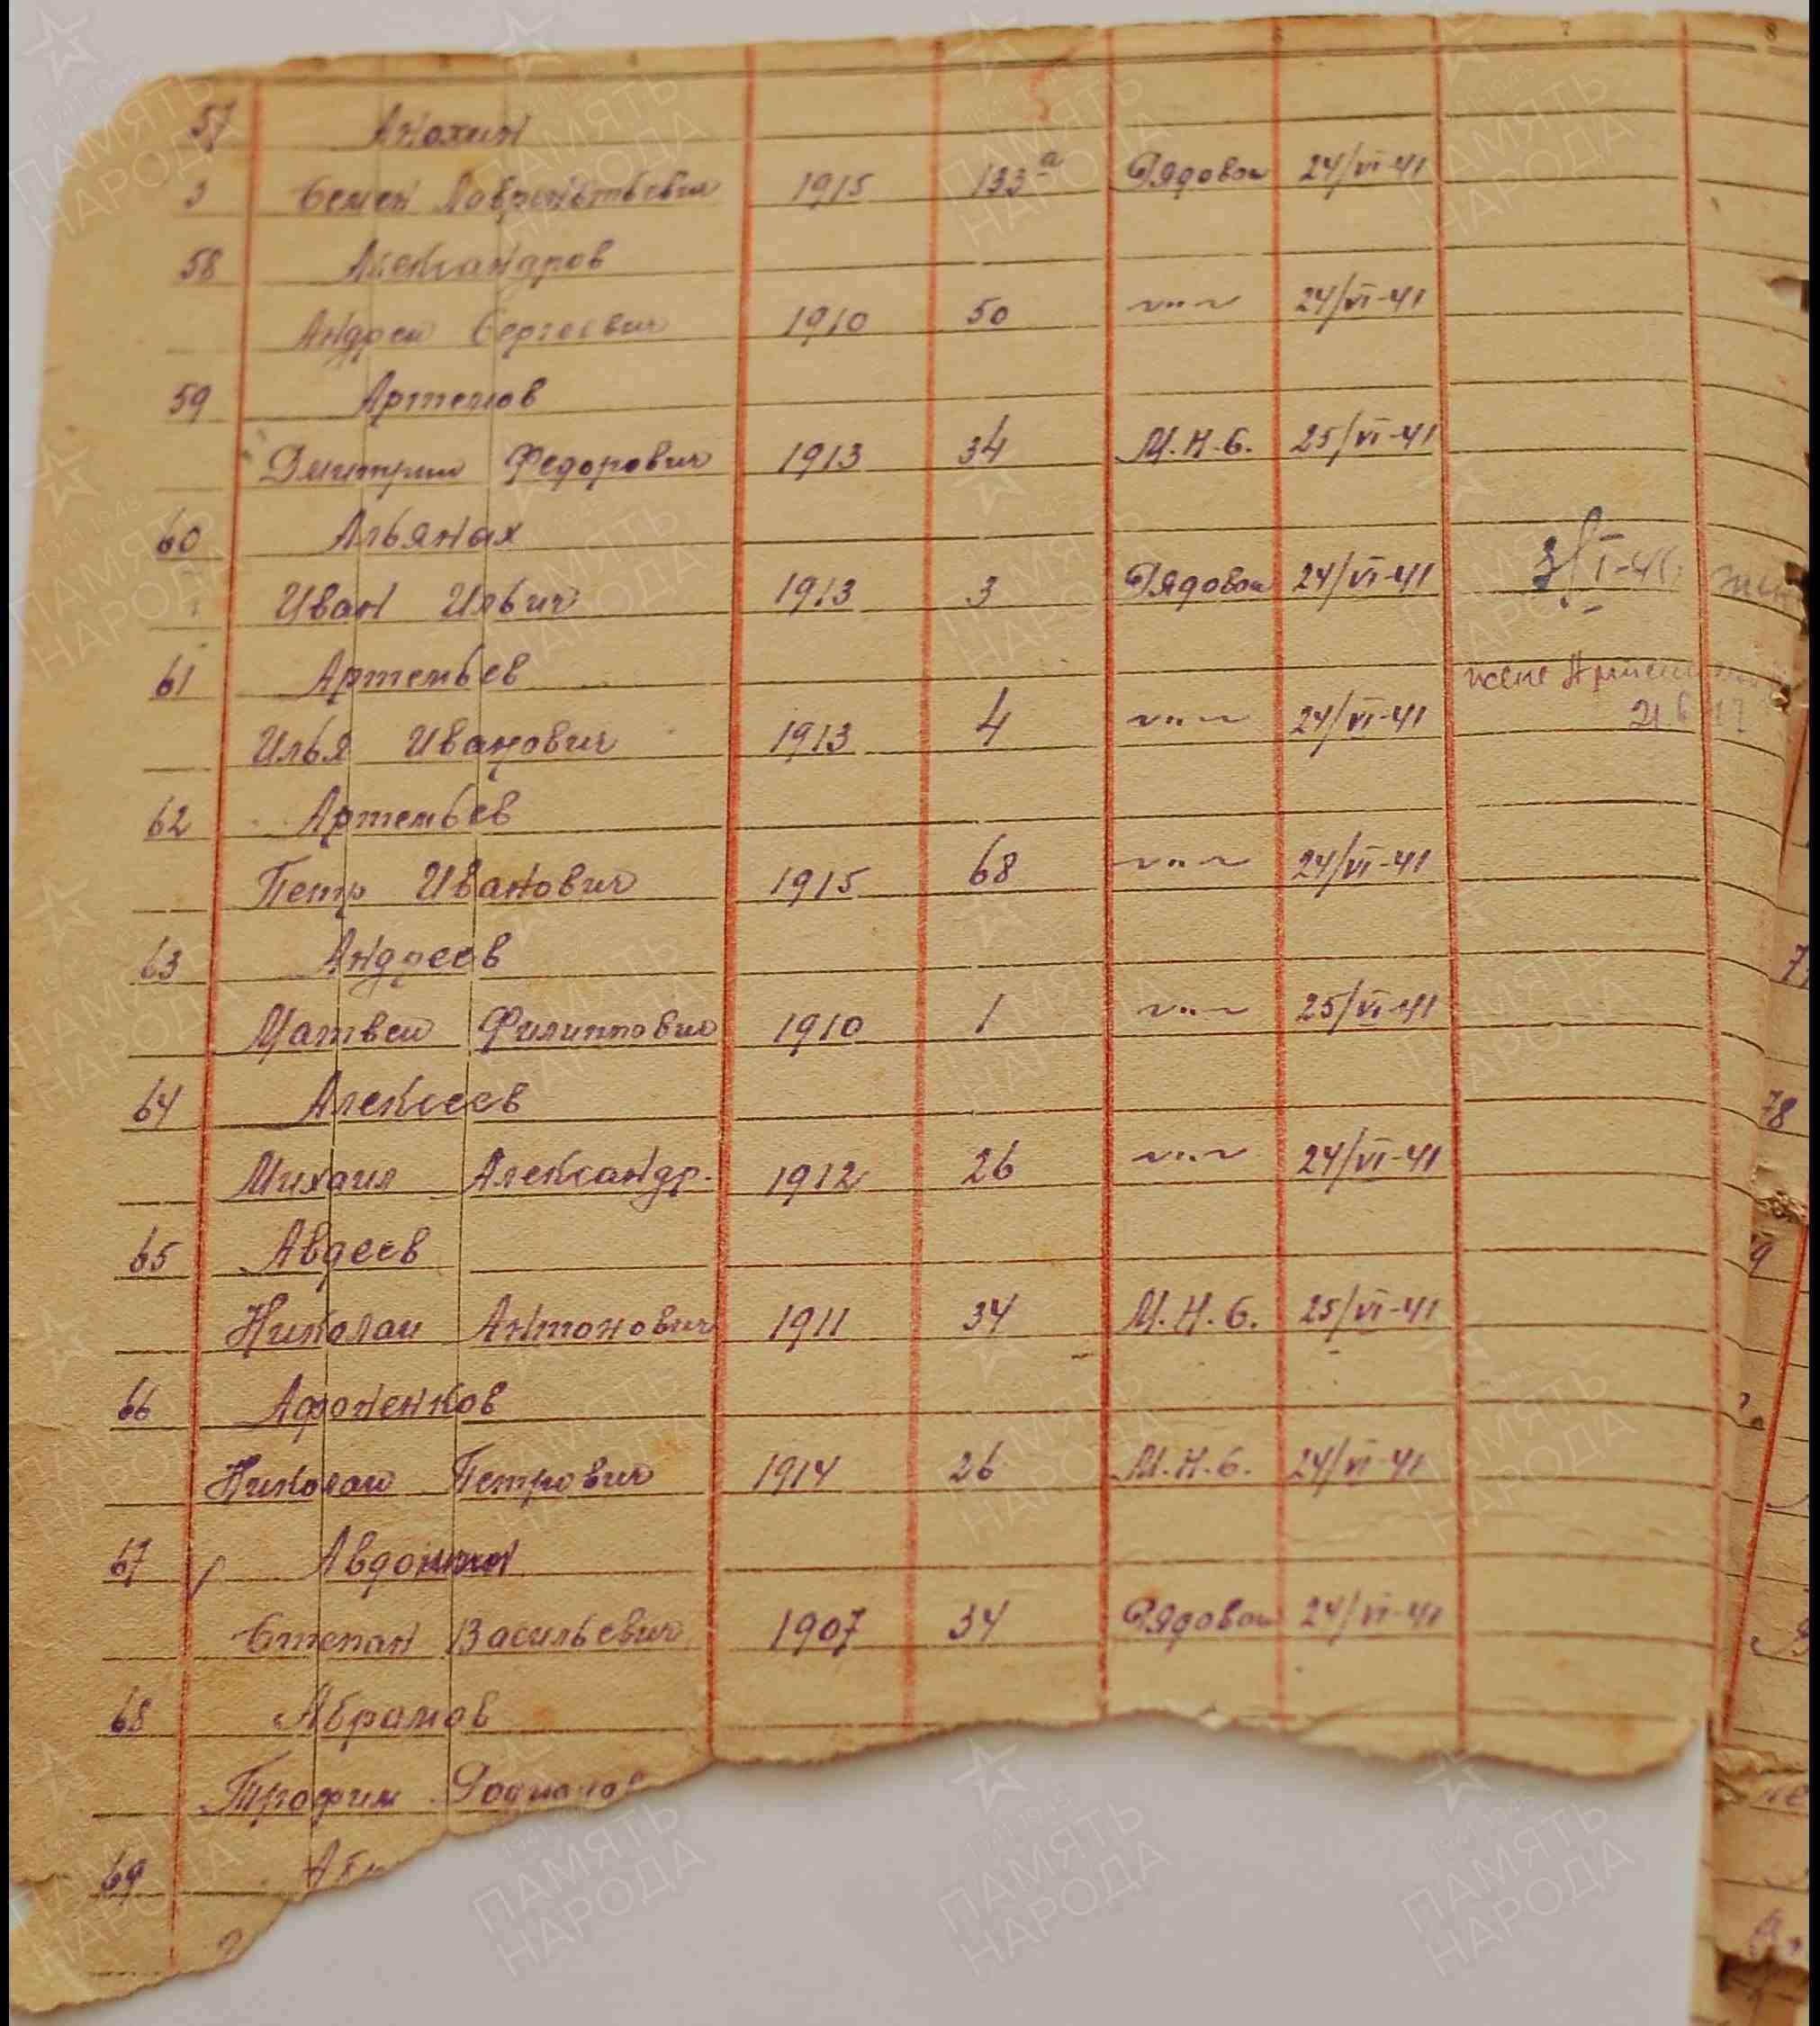 57 Анохин
3 Семен Лаврентьевич 1915 133а Рядовой 24/VI-41
58 Александров
Андрей Сергеевич 1910 50 ~"~ 24/VI-41
59 Артемов
Дмитрий Федорович 1913 34 М.Н.С. 25/VI-41
60 Альянах
Иван Ильич 1913 3 Рядовой 24/VI-41
61 Артемьев
Илья Иванович 1913 4 ~"~ 24/VI-41
62 Артемьев
Петр Иванович 1915 68 ~"~ 24/VI-41
63 Андреев
Матвей Филиппович 1910 1 ~"~ 25/VI-41
64 Алексеев
Михаил Александр. 1912 26 ~"~ 24/VI-41
65 Авдеев
Николай Антонович 1911 34 М.Н.С. 25/VI-41
66 Афоненков
Николай Петрович 1914 26 М.Н.С. 24/VI-41
67 Авдонин
Степан Васильевич 1907 34 Рядовой 24/VI-41
68 Абрамов
Трофим
69
78
ПАМЯТЬ НАРОДА